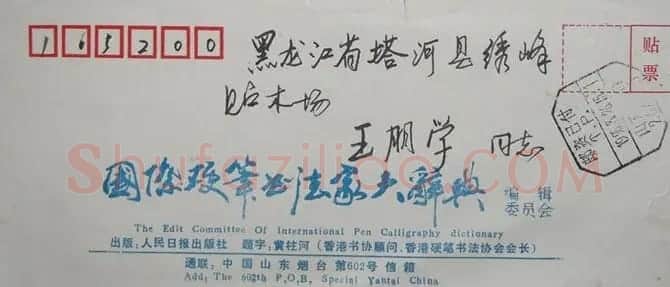 165200
贴
票
黑龙江省塔河县绣峰
贮木场
王朋学 同志
国际硬笔书法家大辞典 编辑
委员会
Shufaziliao.com
The Edit Committee Of International Pen Calligraphy dictionary
出版：人民日报出版社 题字：黄柱河（香港书协顾问.香港硬笔书法协会会长）
通联：中国山东烟台第602号信箱
Add: The 602th P,O,B, Special Yantai China